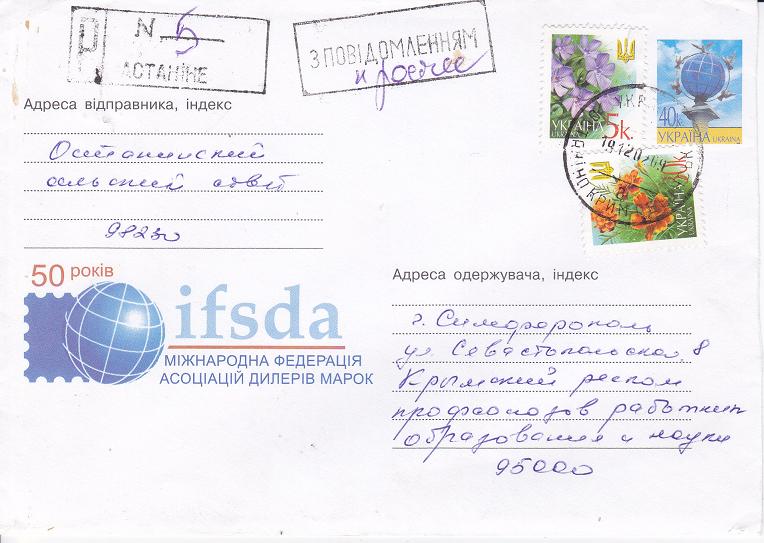 Р N 5
АСТАНІНЕ
З ПОВІДОМЛЕННЯМ
УКРАЇНА
UKRAINA
5к.
40к.
УКРАЇНА UKRAINA
УКРАЇНА
UKRAINA
191202
Адреса відправника, індекс
Останинский
сельский совіт
98230
50 років
ifsda
МІЖНАРОДНА ФЕДЕРАЦІЯ
АСОЦІАЦІЙ ДИЛЕРІВ МАРОК
Адреса одержувача, індекс
г. Симферополь
ул. Севастопольская, 8
Крымский реском
профсоюзов работник
образования и науки
95000